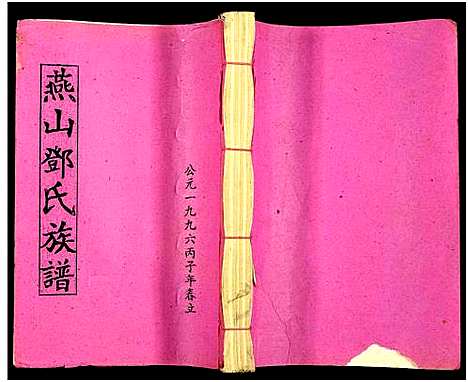 燕山鄧氏族譜
公元一九九六丙子年春立